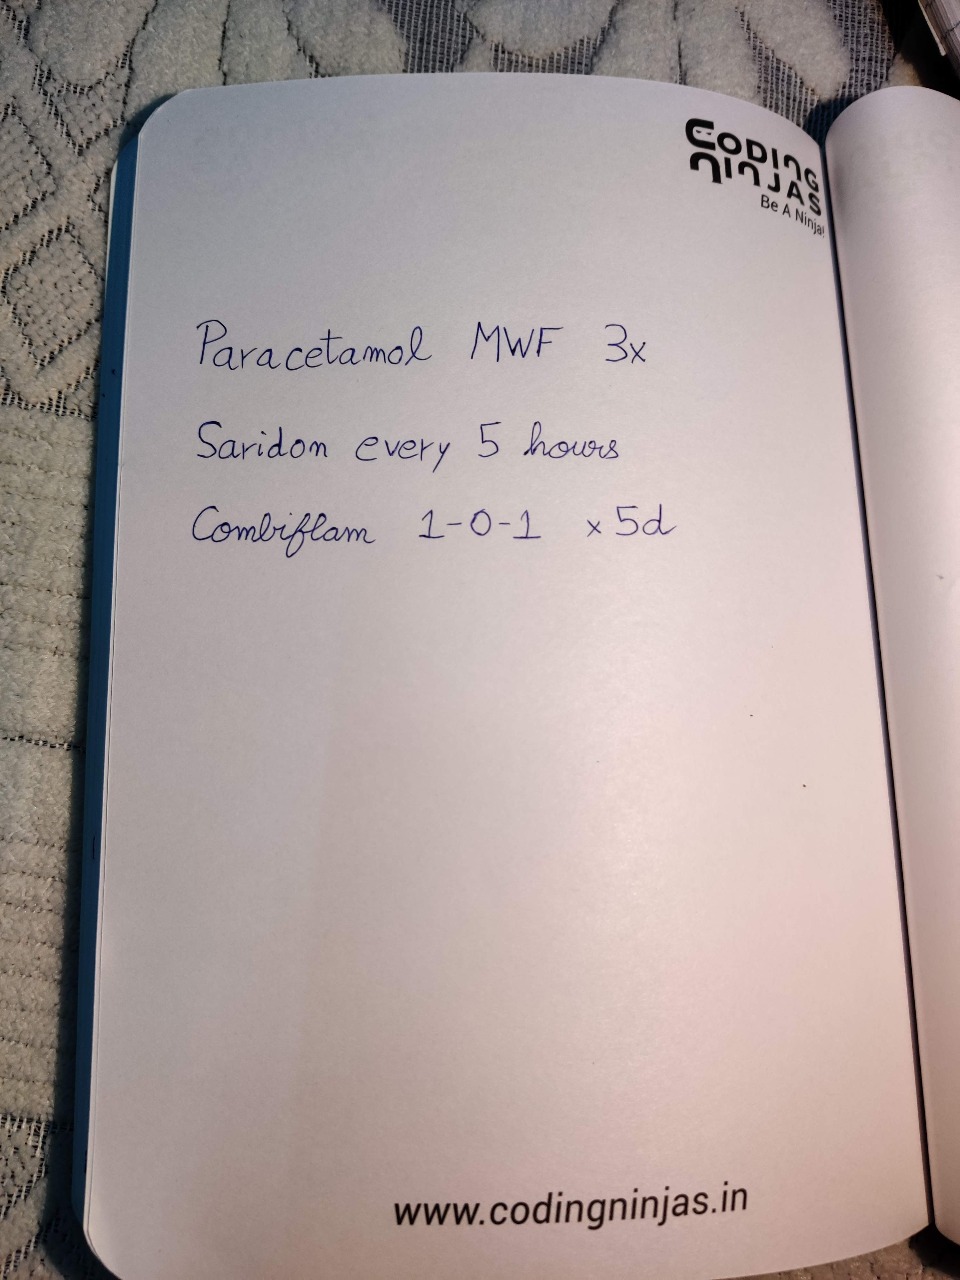 CODING
NINJAS
Be A Ninja!
Paracetamol MWF 3x
Saridon every 5 hours
Combiflam 1-0-1 x 5d
www.codingninjas.in